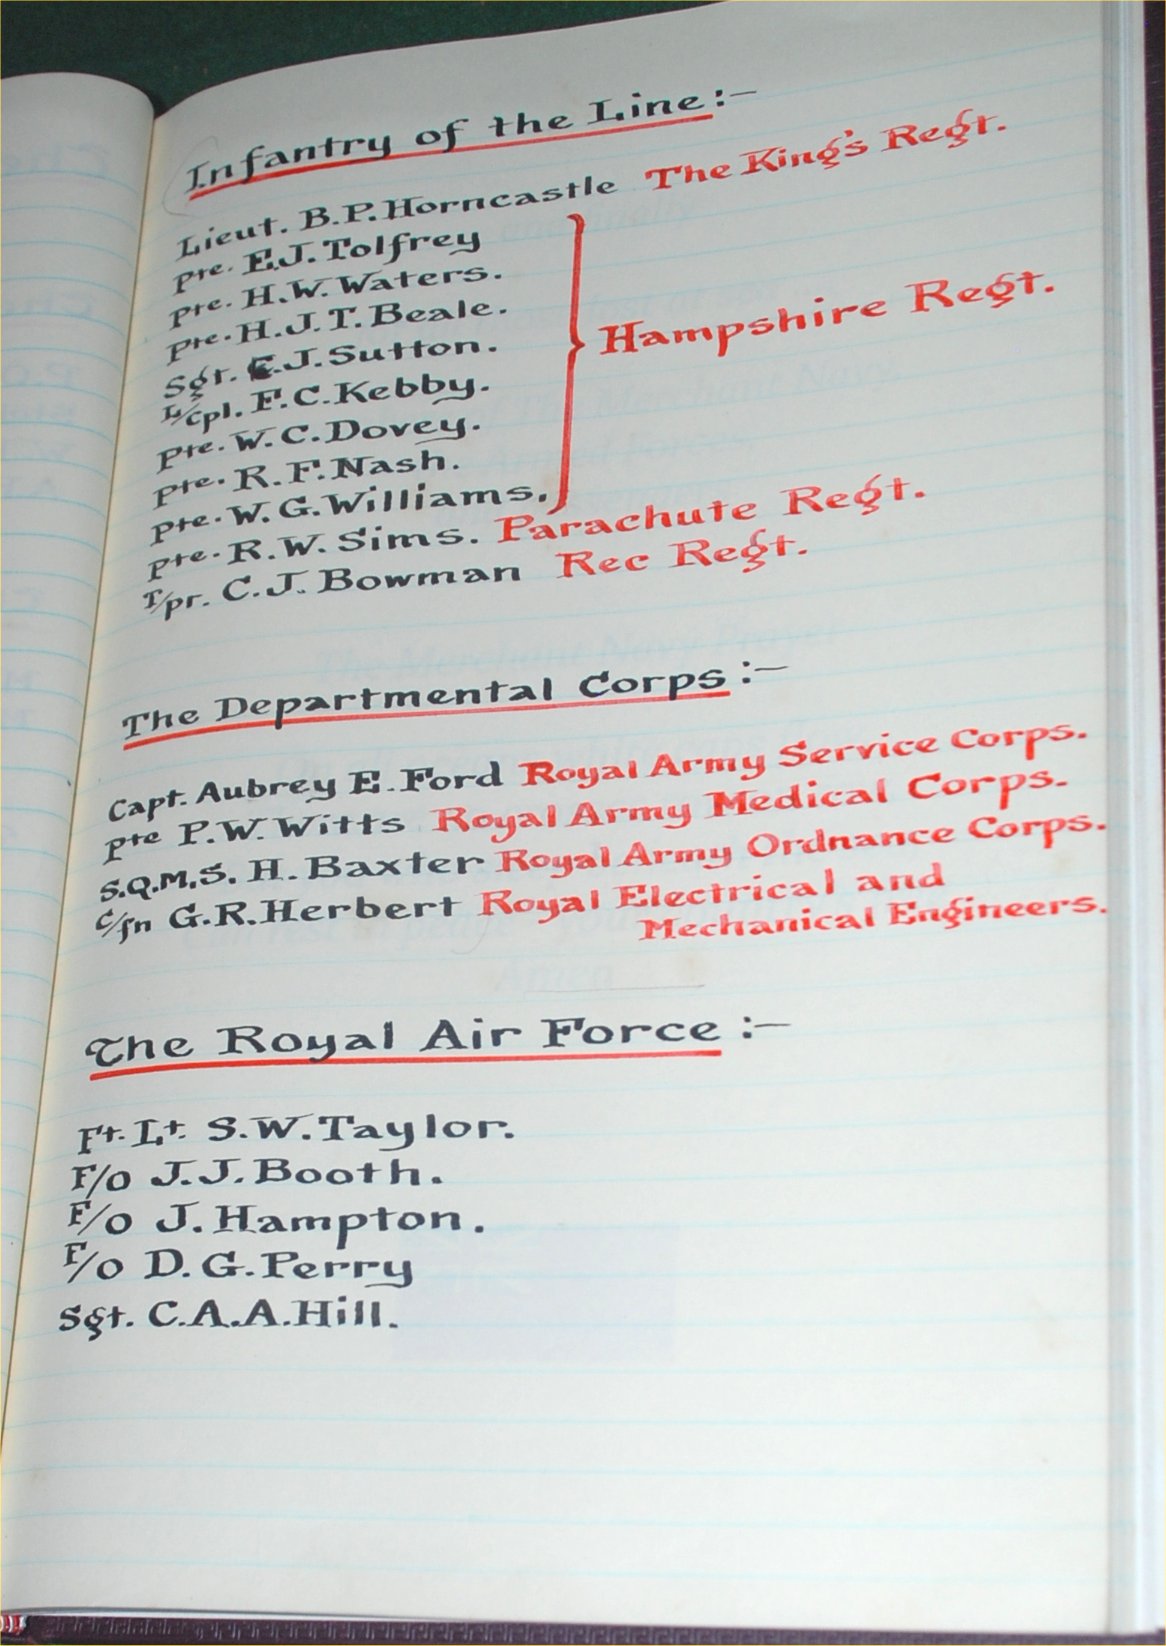 Infantry of the Line:-
Lieut. B.P. Horncastle The King's Regt.
Pte. E.J. Tolfrey
Pte. H.W. Waters.
Pte. H.J.T. Beale.
Sgt. E.J. Sutton.
L/cpl. F.C. Kebby.
Pte. W.C. Dovey.
Pte. R.F. Nash.
Pte. W.G. Williams.
Hampshire Regt.
Pte. R.W. Sims. Parachute Regt.
T/pr. C.J. Bowman Rec Regt.
The Departmental Corps:-
Capt. Aubrey E. Ford Royal Army Service Corps.
Pte P.W. Witts Royal Army Medical Corps.
S.Q.M.S. H. Baxter Royal Army Ordnance Corps.
C/fn G.R. Herbert Royal Electrical and
Mechanical Engineers.
The Royal Air Force:-
Ft. Lt. S.W. Taylor.
F/O J.J. Booth.
F/O J. Hampton.
F/O D.G. Perry
Sgt. C.A.A. Hill.